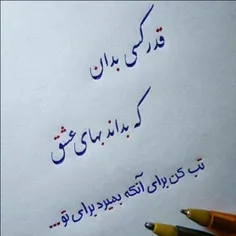 قدر کسی بدان
که بداند بهای عشق
تب کن برای آنکه بمیرد برای تو...